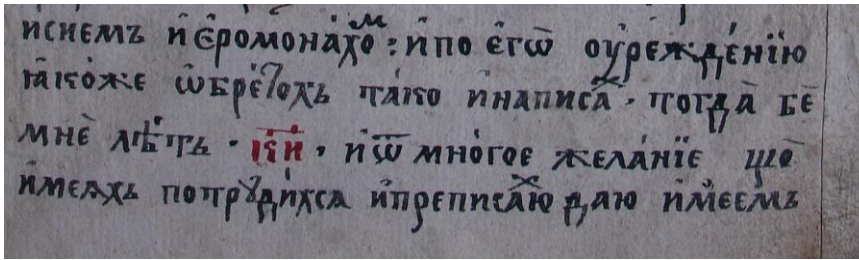 исиемъ и҆ є҆ромона́хоⷨ : и҆по є҆гѡ̀ оу҆режде́нїю
ꙗ҆́коже ѡ҆брѣто́хъ та́ко и҆написаⷯ · тогда̀ бѐ
мнѐ лѣтъ · к҃и · и҆ѿ мно́гое жела́нїе що̀
и҆меахъ потрꙋди́хсѧ и҆преписаⷯю даю и҆́меемъ